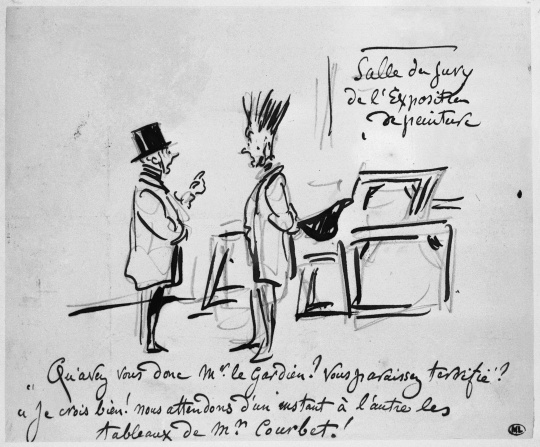 Salle du Jury
de l'Exposition
de peinture
" Qu'avez vous donc Mr le Gardien? Vous paraissez terrifié"?
" Je crois bien! nous attendons d'un instant à l'autre les
tableaux de Mr Courbet!
ML